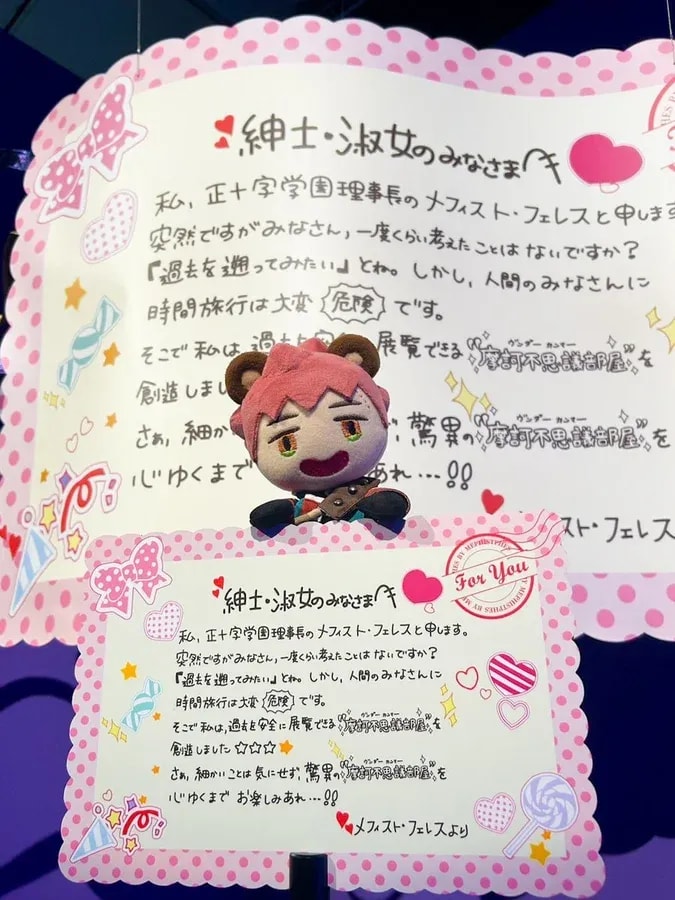 紳士・淑女のみなさまへ
私、正十字学園理事長のメフィスト・フェレスと申します
突然ですがみなさん,一度くらい考えたことはないですか?
『過去を遡ってみたい』とね。しかし,人間のみなさんに
時間旅行は大変 危険 です。
そこで私は、過去を 展覧できる"摩訶不思議部屋"を
ヴンダー カンマー
創造しまし
さぁ,細か 驚異の"摩訶不思議部屋"を
ヴンダー カンマー
心ゆくまで あれ…!!
フィスト・フェレス
For You
BY MEPHISTPHES
紳士・淑女のみなさまへ
私、正十字学園理事長のメフィスト・フェレスと申します。
突然ですがみなさん,一度くらい考えたことはないですか?
『過去を遡ってみたい』とね。しかし,人間のみなさんに
時間旅行は大変 危険 です。
ヴンダー カンマー
そこで私は、過去を安全に展覧できる"摩訶不思議部屋"を
創造しました☆☆☆
ヴンダー カンマー
さぁ,細かいことは気にせず,驚異の"摩訶不思議部屋"を
心ゆくまで お楽しみあれ…!!
メフィスト・フェレスより